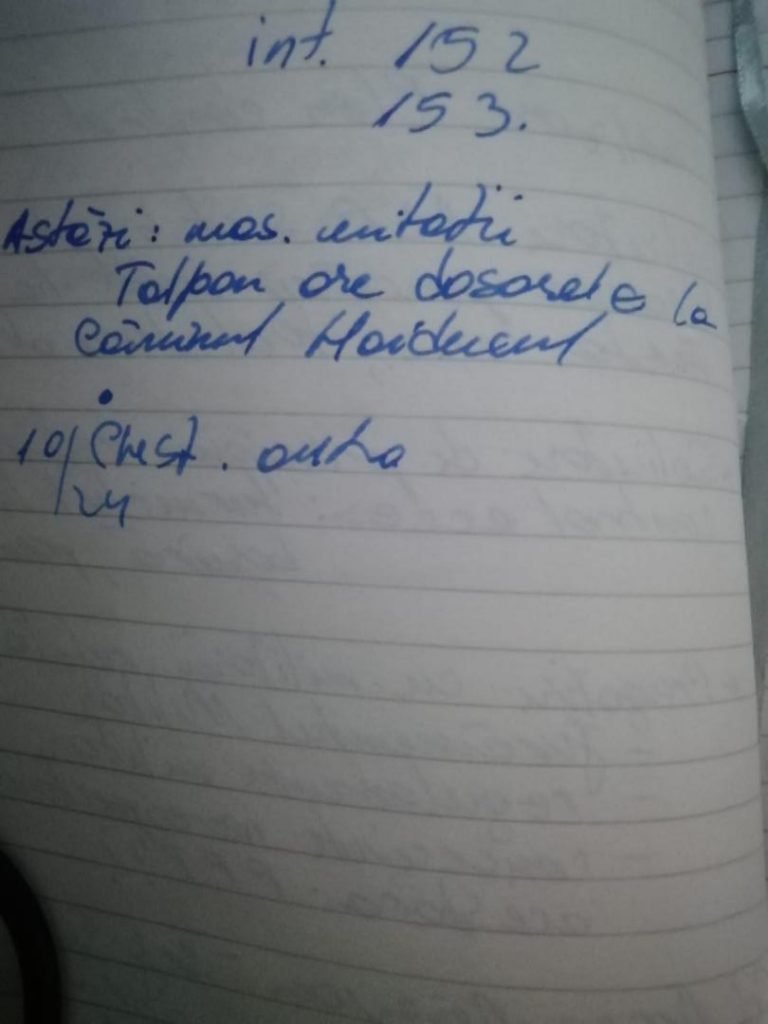 int. 152
153.
Astăzi: mas. unitații
Talpan are dosarele la
Căminul
10/ Chest.
24